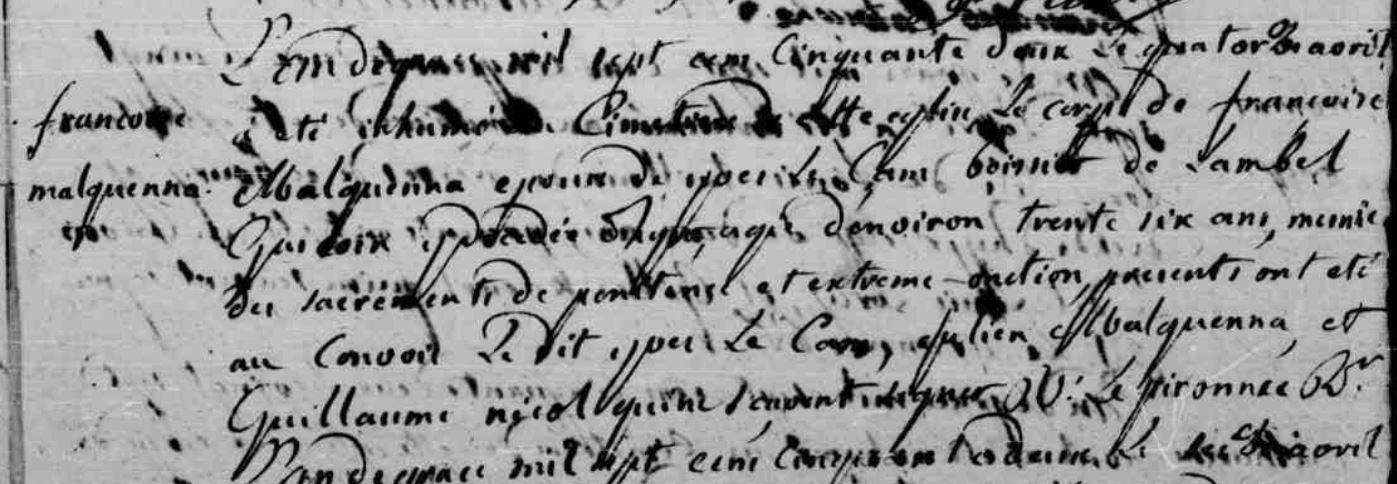 L'an de grace mil sept cent Cinquante deux Le quatorze avril
francoise
a été inhumé Cimetiere de cette eglise Le corps de francoise
malquenna
Malquenna epouse de yves Le Cam de Lambel
agée d'environ trente six ans, munie
des sacrements de penitence et extreme-onction, presents ont eté
au Convoi Le dit yves Le Cam, julien Malquenna, et
Guillaume nicol qui ne scavent signer Le pironnec
L'an de grace mil sept cent Cinquante deux Le avril